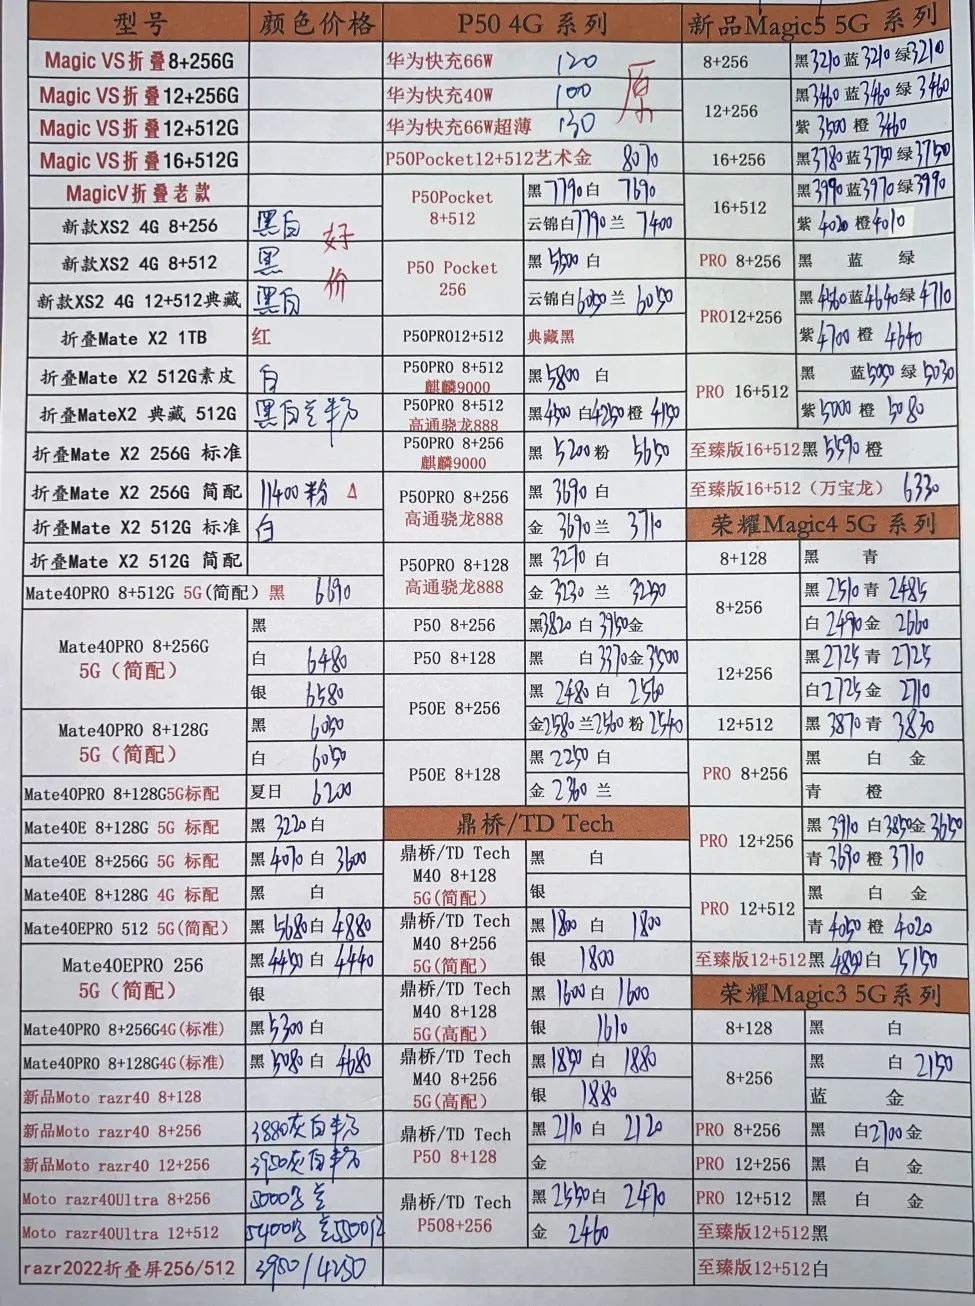 型号 颜色价格
Magic VS折叠8+256G
Magic VS折叠12+256G
Magic VS折叠12+512G
Magic VS折叠16+512G
MagicV折叠老款
新款XS2 4G 8+256 黑白 好
新款XS2 4G 8+512 黑 价
新款XS2 4G 12+512典藏 黑白
折叠Mate X2 1TB 红
折叠Mate X2 512G素皮 白
折叠MateX2 典藏 512G 黑白兰
折叠Mate X2 256G 标准
折叠Mate X2 256G 简配 11400粉 Δ
折叠Mate X2 512G 标准 白
折叠Mate X2 512G 简配
Mate40PRO 8+512G 5G(简配) 黑 6690
Mate40PRO 8+256G
5G (简配)
黑
白 6480
银 6580
Mate40PRO 8+128G
5G (简配)
黑 6050
白 6050
Mate40PRO 8+128G5G标配 夏日 6200
Mate40E 8+128G 5G 标配 黑 3220 白
Mate40E 8+256G 5G 标配 黑 4070 白 3600
Mate40E 8+128G 4G 标配 黑 白
Mate40EPRO 512 5G(简配) 黑 5680 白 4880
Mate40EPRO 256
5G (简配)
黑 4450 白 4440
银
Mate40PRO 8+256G4G(标准) 黑 5300 白
Mate40PRO 8+128G4G(标准) 黑 5080 白 4680
新品Moto razr40 8+128
新品Moto razr40 8+256 3880灰白
新品Moto razr40 12+256 3950灰白
Moto razr40Ultra 8+256 5000
Moto razr40Ultra 12+512 5400
razr2022折叠屏256/512 3950/4250
P50 4G 系列
华为快充66W 120 原
华为快充40W 100
华为快充66W超薄 130
P50Pocket12+512艺术金 8070
P50Pocket
8+512
黑 7790 白 7690
云锦白 7790 兰 7400
P50 Pocket
256
黑 5500 白
云锦白 6050 兰 6050
P50PRO12+512 典藏黑
P50PRO 8+512
麒麟9000
黑 5800 白
P50PRO 8+512
高通骁龙888
黑 4500 白 4250 橙 4150
P50PRO 8+256
麒麟9000
黑 5200 粉 5650
P50PRO 8+256
高通骁龙888
黑 3690 白
金 3690 兰 3710
P50PRO 8+128
高通骁龙888
黑 3270 白
金 3230 兰 3250
P50 8+256 黑 3820 白 3950 金
P50 8+128 黑 白 3370 金 3500
P50E 8+256
黑 2480 白 2560
金 2580 兰 2560 粉 2540
P50E 8+128
黑 2250 白
金 2360 兰
鼎桥/TD Tech
鼎桥/TD Tech
M40 8+128
5G(简配)
黑 白
银
鼎桥/TD Tech
M40 8+256
5G(简配)
黑 1800 白 1800
银 1800
鼎桥/TD Tech
M40 8+128
5G(高配)
黑 1600 白 1600
银 1610
鼎桥/TD Tech
M40 8+256
5G(高配)
黑 1850 白 1880
银 1880
鼎桥/TD Tech
P50 8+128
黑 2110 白 2120
金
鼎桥/TD Tech
P508+256
黑 2550 白 2470
金 2460
新品Magic5 5G 系列
8+256 黑 3210 蓝 3210 绿 3210
12+256
黑 3460 蓝 3460 绿 3460
紫 3500 橙 3460
16+256 黑 3780 蓝 3750 绿 3750
16+512
黑 3990 蓝 3970 绿 3990
紫 4020 橙 4010
PRO 8+256 黑 蓝 绿
PRO12+256
黑 4560 蓝 4640 绿 4710
紫 4700 橙 4640
PRO 16+512
黑 蓝 5050 绿 5030
紫 5000 橙 5080
至臻版16+512 黑 5590 橙
至臻版16+512 (万宝龙) 6330
荣耀Magic4 5G 系列
8+128 黑 青
8+256
黑 2510 青 2485
白 2490 金 2660
12+256
黑 2725 青 2725
白 2725 金 2710
12+512 黑 3870 青 3830
PRO 8+256
黑 白 金
青 橙
PRO 12+256
黑 3910 白 3850 金 3650
青 3690 橙 3710
PRO 12+512
黑 白 金
青 4050 橙 4020
至臻版12+512 黑 4890 白 5150
荣耀Magic3 5G系列
8+128 黑 白
8+256
黑 白 2150
蓝 金
PRO 8+256 黑 白 2700 金
PRO 12+256 黑 白 金
PRO 12+512 黑 白 金
至臻版12+512黑
至臻版12+512白